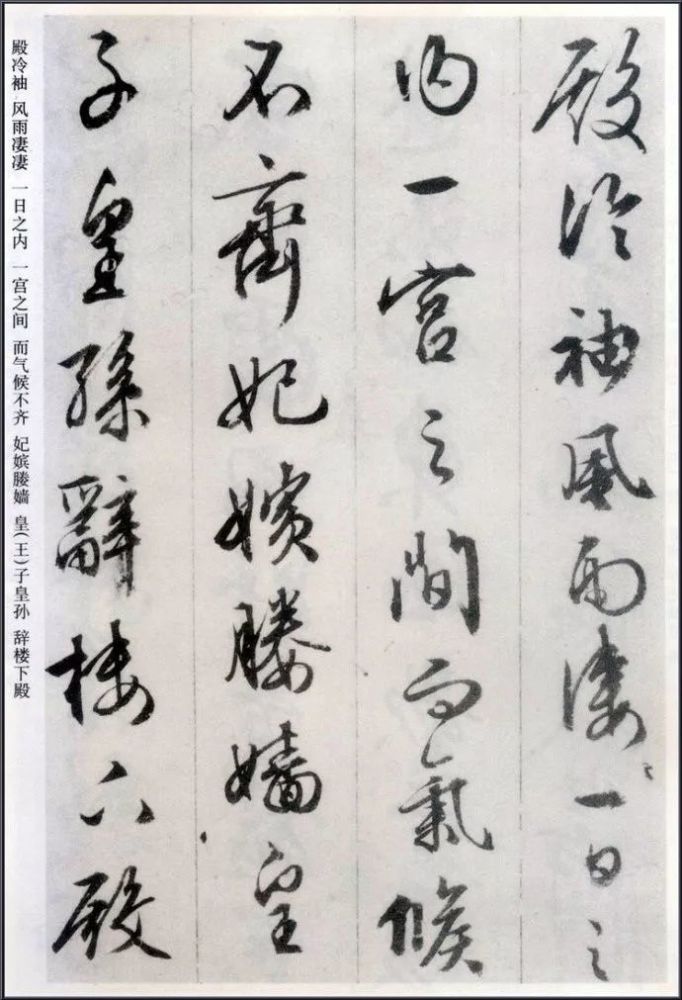 殿冷袖風雨淒〻一日之
內一宮之間而氣候
不齊妃嬪媵嬙皇
子皇孫辭樓下殿
殿冷袖 风雨凄凄 一日之内 一宫之间 而气候不齐 妃嫔媵嫱 皇(王)子皇孙 辞楼下殿